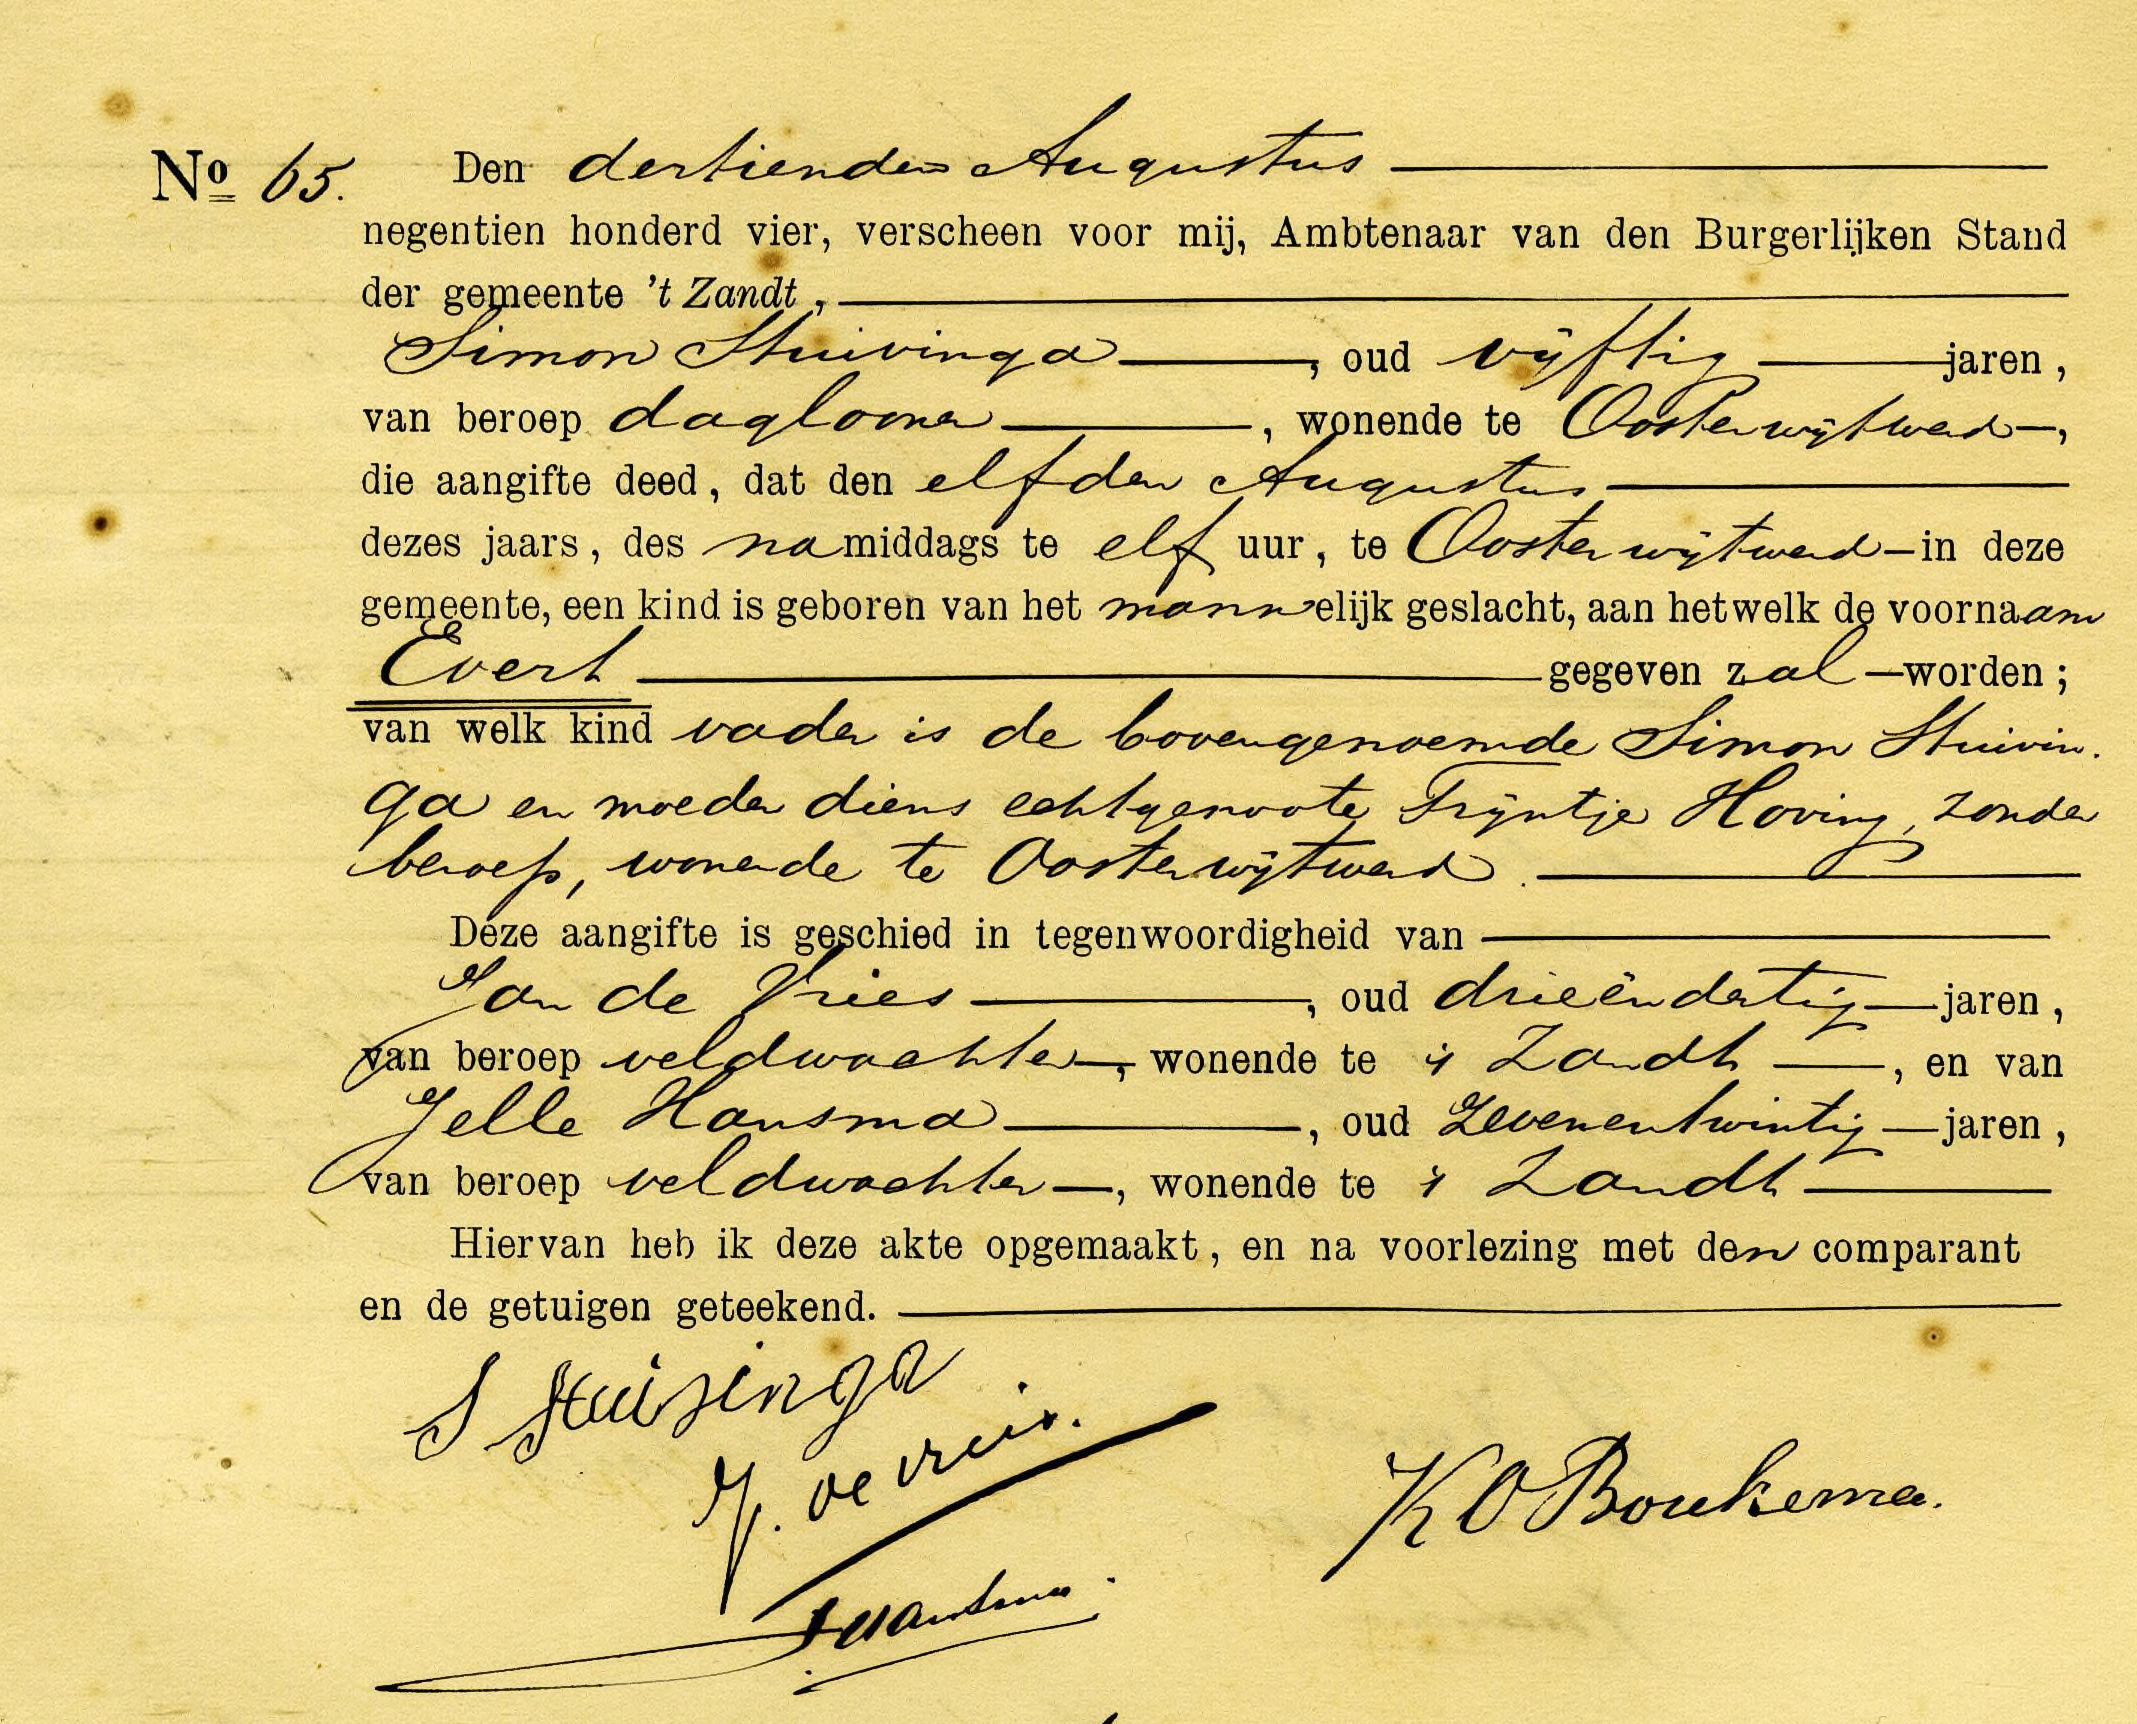 No 65. Den dertienden Augustus
negentien honderd vier, verscheen voor mij, Ambtenaar van den Burgerlijken Stand
der gemeente 't Zandt,
Simon Stuivinga, oud vijftig jaren,
van beroep daglooner, wonende te Oosterwijtwerd,
die aangifte deed, dat den elfden Augustus
dezes jaars, des namiddags te elf uur, te Oosterwijtwerd in deze
gemeente, een kind is geboren van het mannelijk geslacht, aan hetwelk de voornaam
Evert gegeven zal worden;
van welk kind vader is de bovengenoemde Simon Stuivin.
ga en moeder diens echtgenoote Trijntje Hoving, zonder
beroep, wonende te Oosterwijtwerd.
Deze aangifte is geschied in tegenwoordigheid van
Jan de Vries, oud drieëndertig jaren,
van beroep veldwachter, wonende te 't Zandt, en van
Jelle Hansma, oud zevenentwintig jaren,
van beroep veldwachter, wonende te 't Zandt
Hiervan heb ik deze akte opgemaakt, en na voorlezing met den comparant
en de getuigen geteekend.
S Stuivinga
J. de Vries.
K O Boukema.
J Hansma.